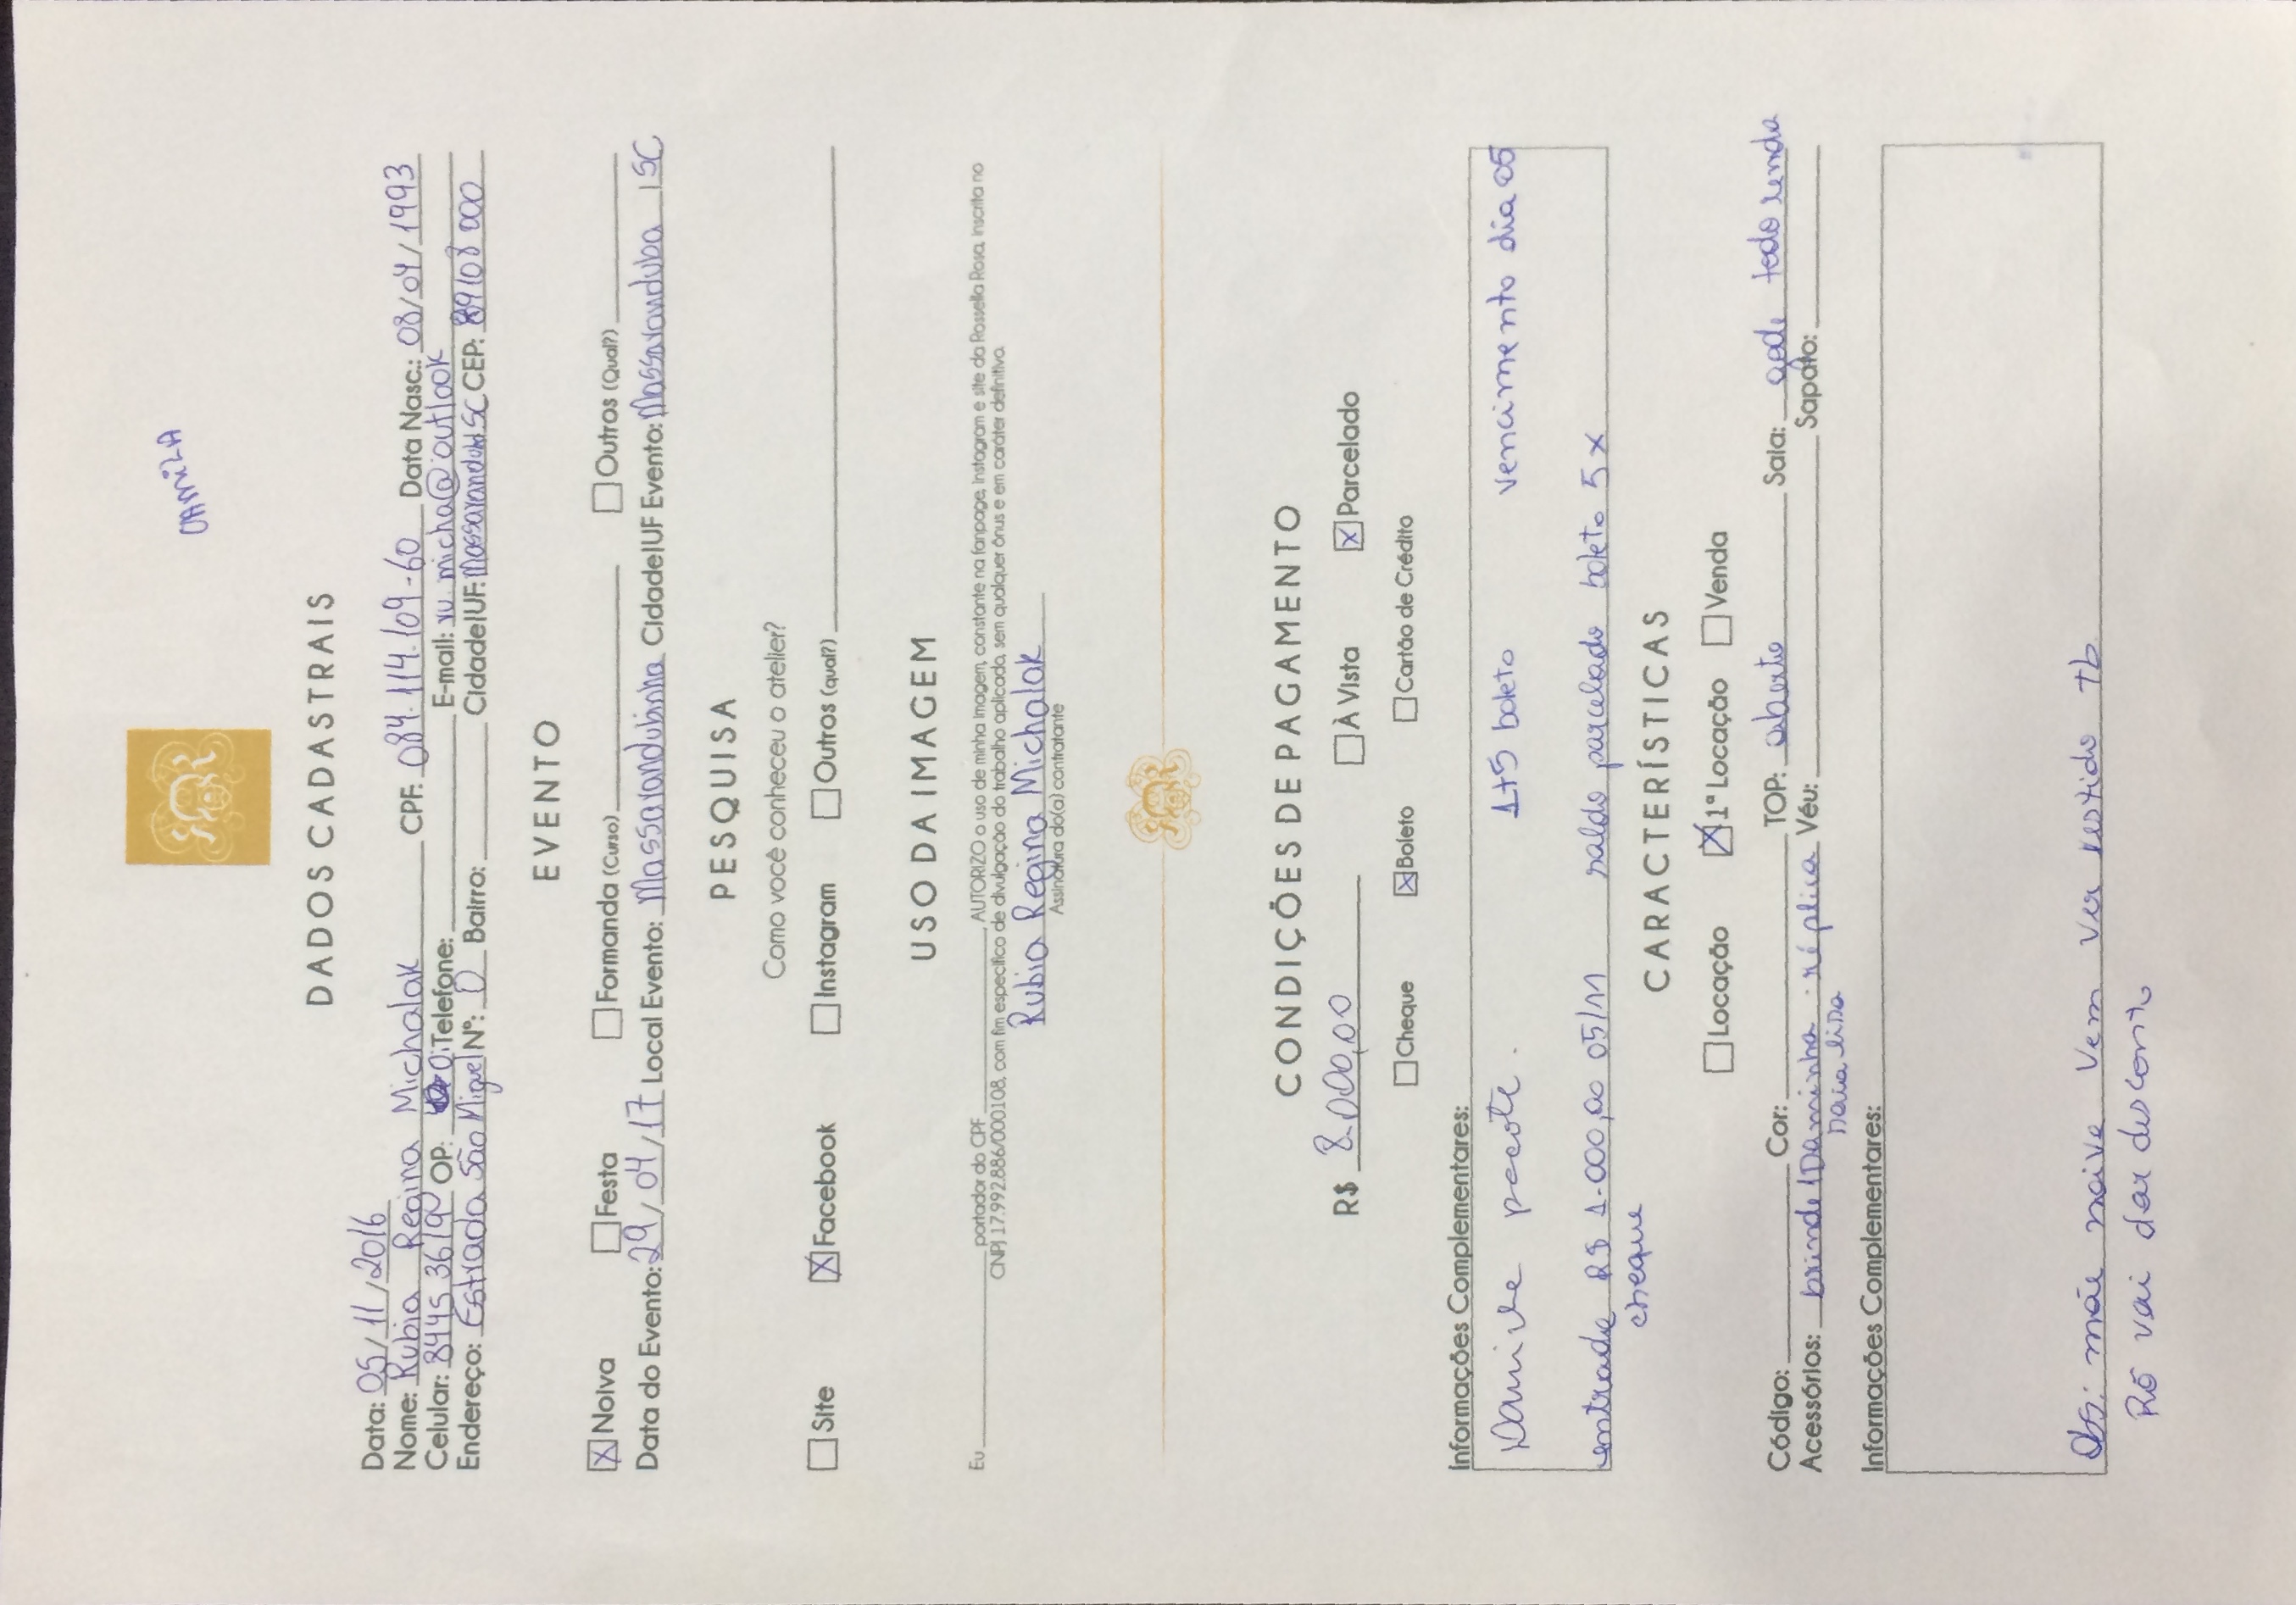 CAMILA
DADOS CADASTRAIS
Data: 05/11/2016
Nome: Rubia Regina Michalak CPF: 084.114.109-60 Data Nasc.: 08/04/1993
Celular: 8445 3619 OP: 0 Telefone: E-mail: ru.micha@outlook
Endereço: Estrada São Miguel Nº: 0 Bairro: Cidade|UF: Massaranduba SC CEP: 89108 000
EVENTO
☒ Noiva ☐ Festa ☐ Formanda (Curso) ☐ Outros (Qual?)
Data do Evento: 29/04/17 Local Evento: Massarandubinha Cidade|UF Evento: Massaranduba | SC
PESQUISA
Como você conheceu o atelier?
☐ Site ☒ Facebook ☐ Instagram ☐ Outros (qual?)
USO DA IMAGEM
Eu portador do CPF , AUTORIZO o uso de minha imagem, constante na fanpage, instagram e site da Rossella Rosa, inscrita no
CNPJ 17.992.886/000108, com fim específico de divulgação do trabalho aplicado, sem qualquer ônus e em caráter definitivo.
Rubia Regina Michalak
Assinatura do(a) contratante
CONDIÇÕES DE PAGAMENTO
R$ 8.000,00 ☐ À Vista ☒ Parcelado
☐ Cheque ☒ Boleto ☐ Cartão de Crédito
Informações Complementares:
pacote. 1+5 boleto vencimento dia 05
entrada R$ 1.000,00 05/11 saldo parcelado boleto 5x
cheque
CARACTERÍSTICAS
☐ Locação ☒ 1ª Locação ☐ Venda
Código: Cor: TOP: aberto Saia: todo renda
Acessórios: brinde daminha réplica Véu: Sapato:
saia lisa
Informações Complementares:
Obs: mãe noiva vem ver vestido tb
Rô vai dar desconto